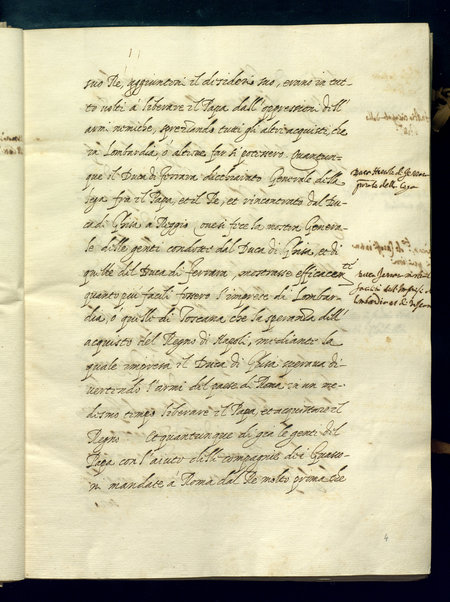 suo Re, aggiuntoui il desiderio suo, erano in tut-
to uolti à liberare il Papa dall'oppression dell'
armi nemiche, sprezzando tutti gli altri acquisti, che
in Lombardia, ò altroue far si potessero. Quantun-
que il Duca di Ferrara dichiarato Generale della
lega frà il Papa, et il Re, et rincontrato dal Du-
ca di Ghisa à Reggio, oue si fece la mostra Genera-
le delle genti condotte dal Duca di Ghisa, et di
quelle del Duca di Ferrara, mostrasse efficacem.te
quanto piu facili fossero l'imprese di Lombar-
dia, ò quelle di Toscana che la speranza dell'
acquisto del Regno di Napoli, mediante la
quale impresa il Duca di Ghisa speraua di-
uertendo l'armi del paese di Roma in un me-
desmo tempo liberare il Papa, et acquistare il
Regno. Et quantunque di già le genti del
Papa con l'aiuto delle compagnie dei Guasco-
ni mandate à Roma dal Re molto prima che
Duca
Generale della lega
Duca
facili dell'imprese
Lombardia
4